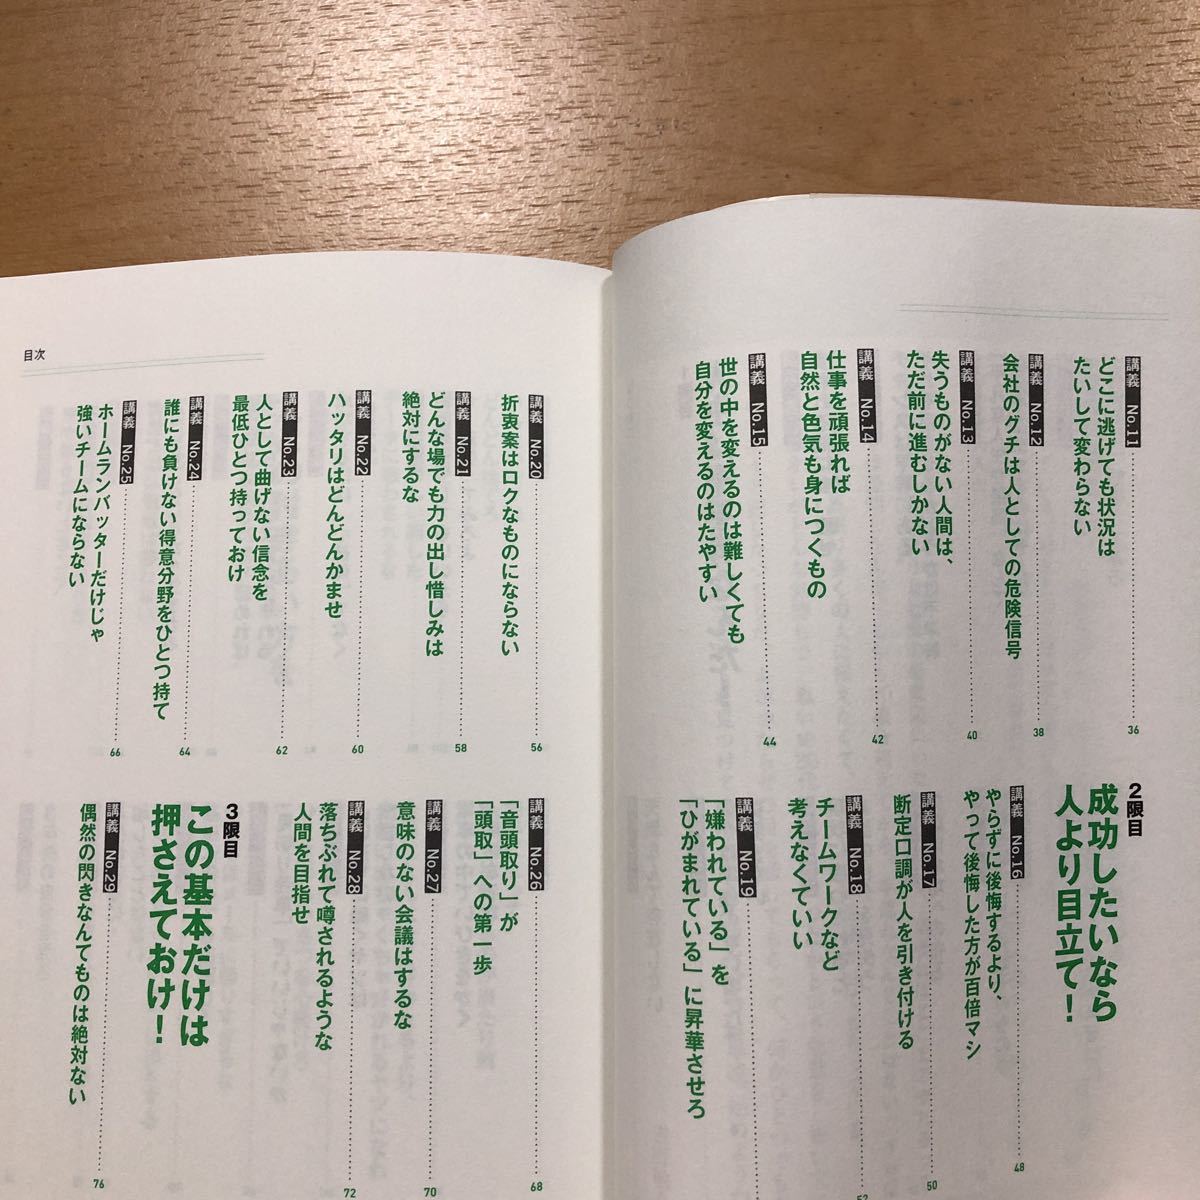 講義 No.11
どこに逃げても状況は
たいして変わらない
36
講義 No.12
会社のグチは人としての危険信号
38
講義 No.13
失うものがない人間は、
ただ前に進むしかない
40
講義 No.14
仕事を頑張れば
自然と色気も身につくもの
42
講義 No.15
世の中を変えるのは難しくても
自分を変えるのはたやすい
44
2限目
成功したいなら
人より目立て！
講義 No.16
やらずに後悔するより、
やって後悔した方が百倍マシ
48
講義 No.17
断定口調が人を引き付ける
50
講義 No.18
チームワークなど
考えなくていい
52
講義 No.19
「嫌われている」を
「ひがまれている」に昇華させろ
目次
講義 No.20
折衷案はロクなものにならない
56
講義 No.21
どんな場でも力の出し惜しみは
絶対にするな
58
講義 No.22
ハッタリはどんどんかませ
60
講義 No.23
人として曲げない信念を
最低ひとつ持っておけ
62
講義 No.24
誰にも負けない得意分野をひとつ持て
64
講義 No.25
ホームランバッターだけじゃ
強いチームにならない
66
講義 No.26
「音頭取り」が
「頭取」への第一歩
68
講義 No.27
意味のない会議はするな
70
講義 No.28
落ちぶれて噂されるような
人間を目指せ
72
3限目
この基本だけは
押さえておけ！
講義 No.29
偶然の閃きなんてものは絶対ない
76